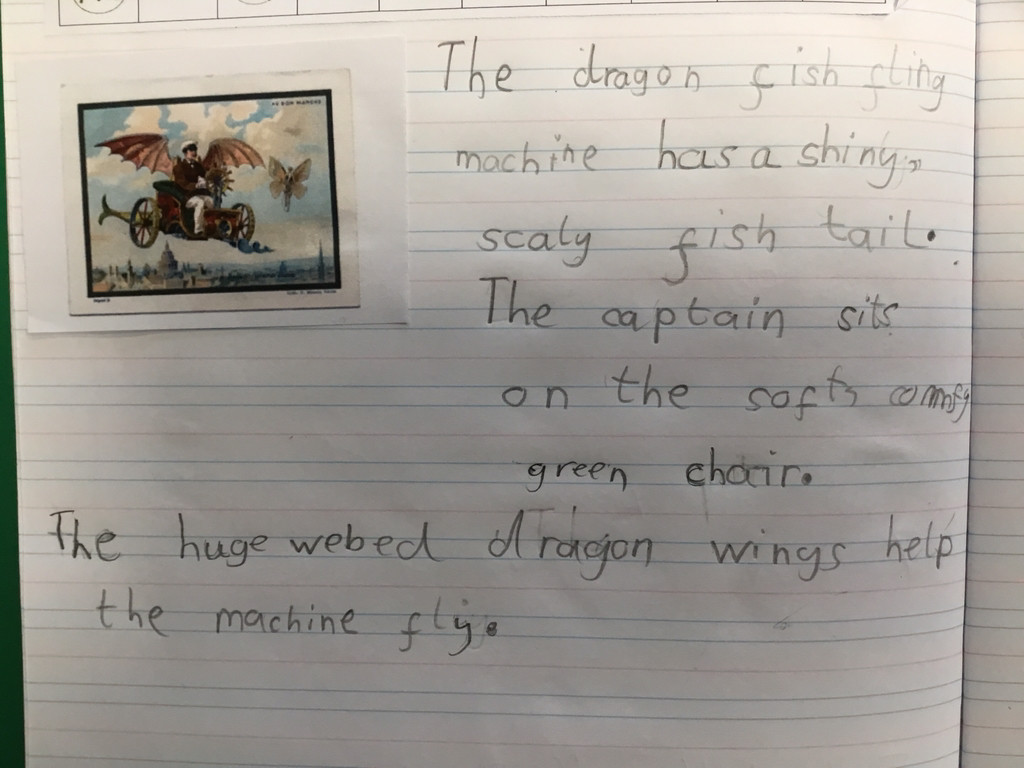 AU BON MARCHÉ
The dragon fish fling
machine has a shiny,
scaly fish tail.
The captain sits
on the soft, comfy
green chair.
The huge webed dragon wings help
the machine fly.